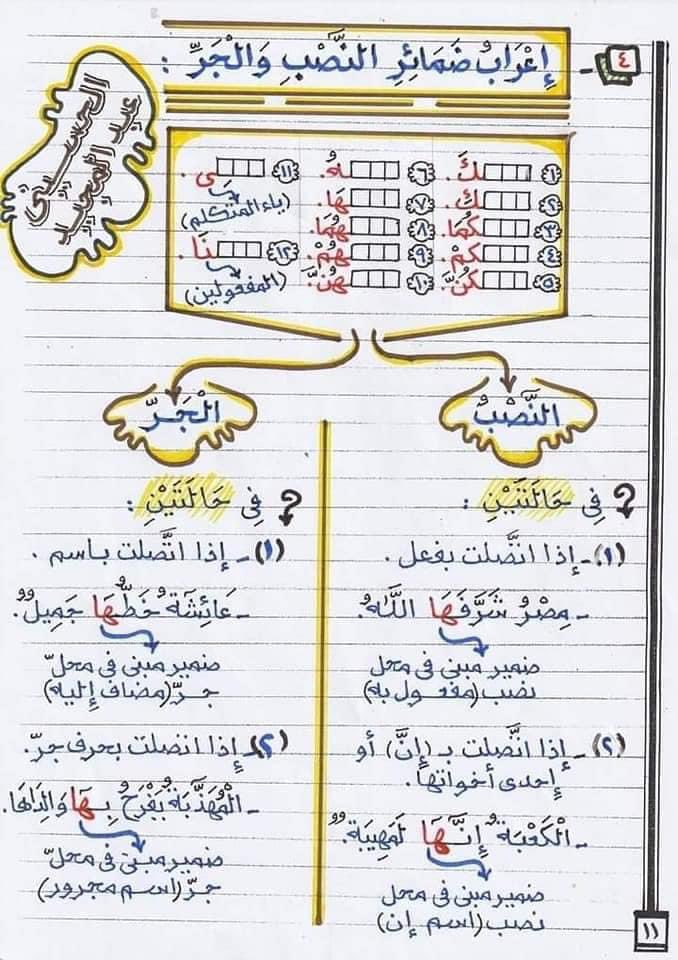 ٤ - إِعْرَابُ ضَمَائِرِ النَّصْبِ وَالْجَرِّ :
عبد الحميد
الحسيني
١ كَ.
٢ كِ.
٣ كُمَا.
٤ كُمْ.
٥ كُنَّ.
٦ ـهُ.
٧ هَا.
٨ هُمَا.
٩ هُمْ.
١٠ هُنَّ.
١١ ـى.
(ياء المتكلم)
١٢ نَا.
(المفعولين)
النَّصْبُ
فِى حَالَتَيْنِ :
(١) - إذا اتَّصلت بفعل.
- مِصْرُ شَرَّفَهَا اللَّهُ.
ضمير مبنى فى محل
نصب (مفعول به)
(٢) - إذا اتَّصلت بـ (إنَّ) أو
إحدى أخواتها.
- الْكَعْبَةُ إِنَّهَا لَمَهِيبَةٌ.
ضمير مبنى فى محل
نصب (اسم إن)
الْجَرّ
فِى حَالَتَيْنِ :
(١) - إذا اتَّصلت باسم.
- عَائِشَةُ خَطُّهَا جَمِيلٌ.
ضمير مبنى فى محلّ
جرّ (مضاف إليه)
(٢) - إذا اتصلت بحرف جرّ.
- الْمُهَذَّبَةُ يَفْرَحُ بِهَا وَالِدَاهَا.
ضمير مبنى فى محلّ
جرّ (اسم مجرور)
١١